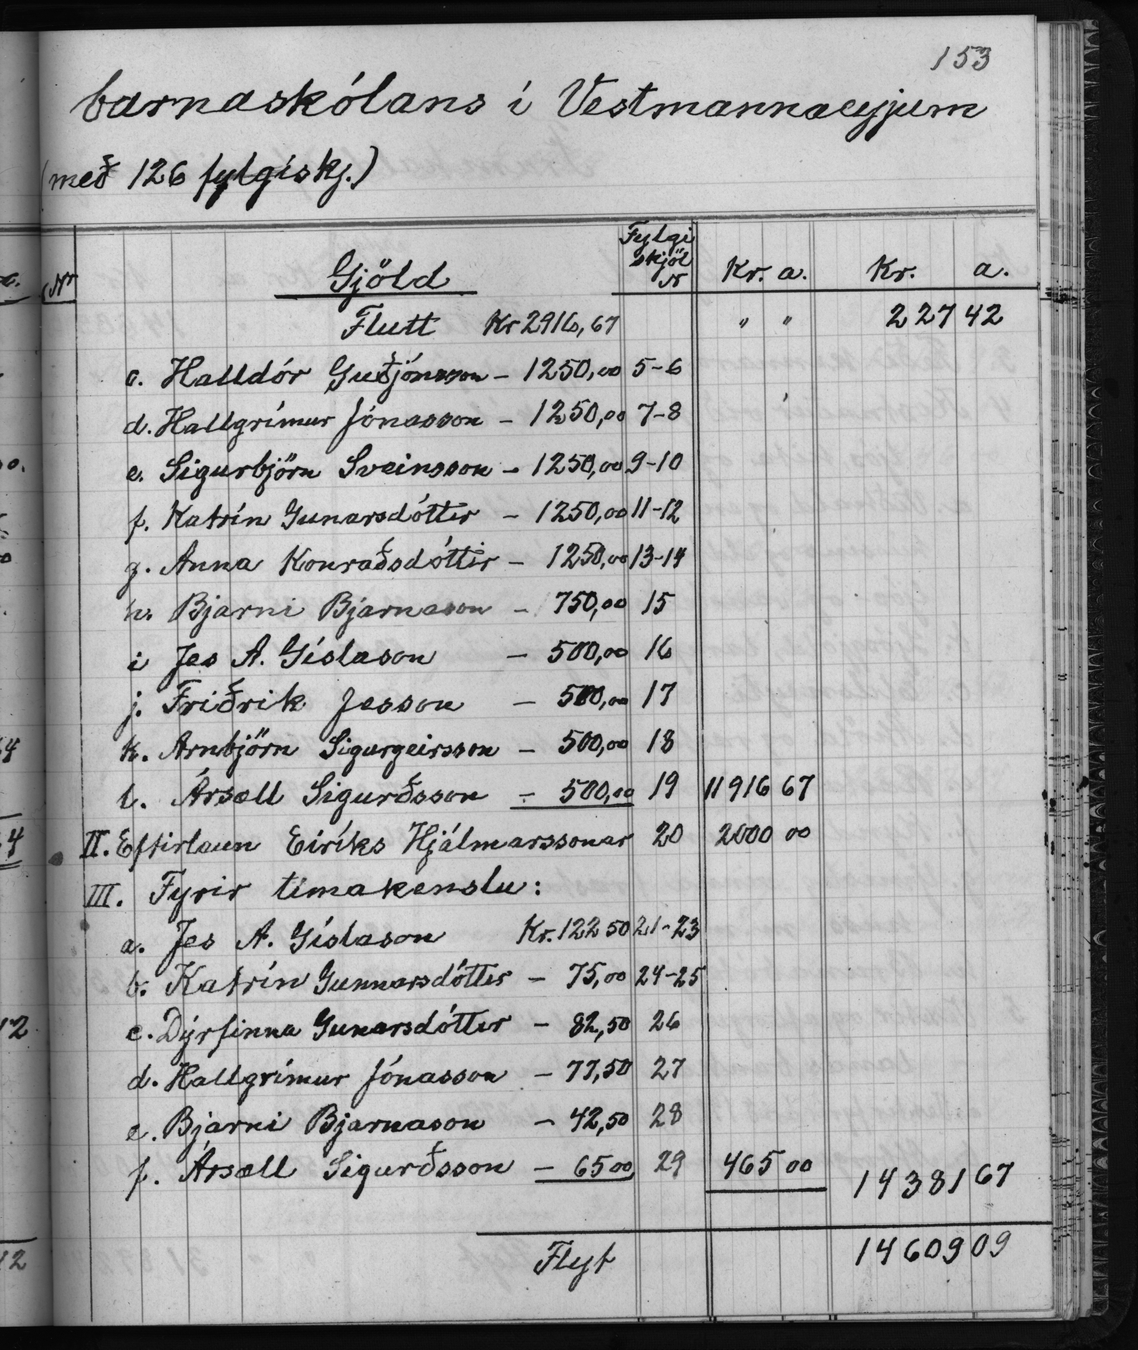 153
barnaskólans í Vestmannaeyjum
(með 126 fylgiskj.)
Nr Gjöld Fylgi skjöl Nr Kr. a. Kr. a.
Flutt Kr 2916,67 " " 227 42
c. Halldór Guðjónsson - 1250,00 5-6
d. Hallgrímur Jónasson - 1250,00 7-8
e. Sigurbjörn Sveinsson - 1250,00 9-10
f. Katrín Gunarsdóttir - 1250,00 11-12
g. Anna Konraðsdóttir - 1250,00 13-14
h. Bjarni Bjarnason - 750,00 15
i Jes A. Gíslason - 500,00 16
j. Friðrik Jesson - 500,00 17
k. Arnbjörn Sigurgeirsson - 500,00 18
l. Ársæll Sigurðsson - 500,00 19 11916 67
II. Eftirlaun Eiríks Hjálmarssonar 20 2000 00
III. Fyrir tímakenslu:
a. Jes A. Gíslason Kr. 122 50 21-23
b. Katrín Gunnarsdóttir - 75,00 24-25
c. Dýrfinna Gunarsdóttir - 82,50 26
d. Hallgrímur Jónasson - 77,50 27
e. Bjarni Bjarnason - 42,50 28
f. Ársæll Sigurðsson - 65 00 29 465 00 14381 67
Flyt 14609 09